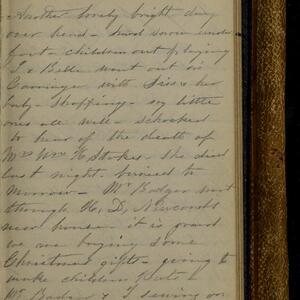 Another lovely bright day
over head - hard down under
foot - children out playing
I & Belle went out in
Carriage with Siss & her
baby - Shopping - my little
ones all well - schocked
to hear of the death of
Mrs Wm H Stokes - she died
last night - buried to
morrow - Mr Badger went
through H. D. Newcombs
new house - it is grand
we are buying some
Christmas gifts - going to
make children
Mr Badger & I sewing on